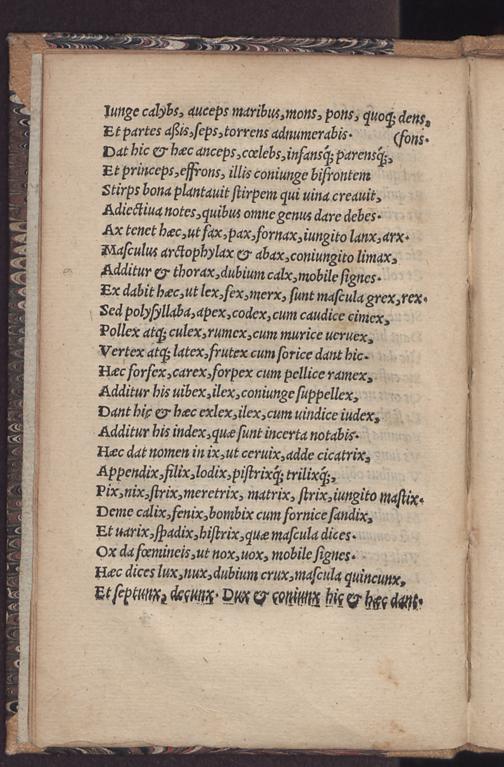 Iunge calybs, auceps maribus, mons, pons, quoq; dens,
Et partes aßis, ſeps, torrens adnumerabis. (fons.
Dat hic & hæc anceps, cœlebs, infansq́; parensq́;,
Et princeps, effrons, illis coniunge bifrontem
Stirps bona plantauit ſtirpem qui uina creauit,
Adiectiua notes, quibus omne genus dare debes.
Ax tenet hæc, ut fax, pax, fornax, iungito lanx, arx.
Maſculus arctophylax & abax, coniungito limax,
Additur & thorax, dubium calx, mobile ſignes.
Ex dabit hæc, ut lex, fex, merx, ſunt maſcula grex, rex.
Sed polyſyllaba, apex, codex, cum caudice cimex,
Pollex atq; culex, rumex, cum murice ueruex,
Vertex atq; latex, frutex cum ſorice dant hic.
Hæc forfex, carex, forpex cum pellice ramex,
Additur his uibex, ilex, coniunge ſuppellex,
Dant hic & hæc exlex, ilex, cum uindice iudex,
Additur his index, quæ ſunt incerta notabis.
Hæc dat nomen in ix, ut ceruix, adde cicatrix,
Appendix, filix, lodix, piſtrixq́; trilixq́;,
Pix, nix, ſtrix, meretrix, matrix, ſtrix, iungito maſtix.
Deme calix, fenix, bombix cum fornice ſandix,
Et uarix, ſpadix, hiſtrix, quæ maſcula dices.
Ox da fœmineis, ut nox, uox, mobile ſignes.
Hæc dices lux, nux, dubium crux, maſcula quincunx,
Et ſeptunx, decunx. Dux & coniunx hic & hæc dant.